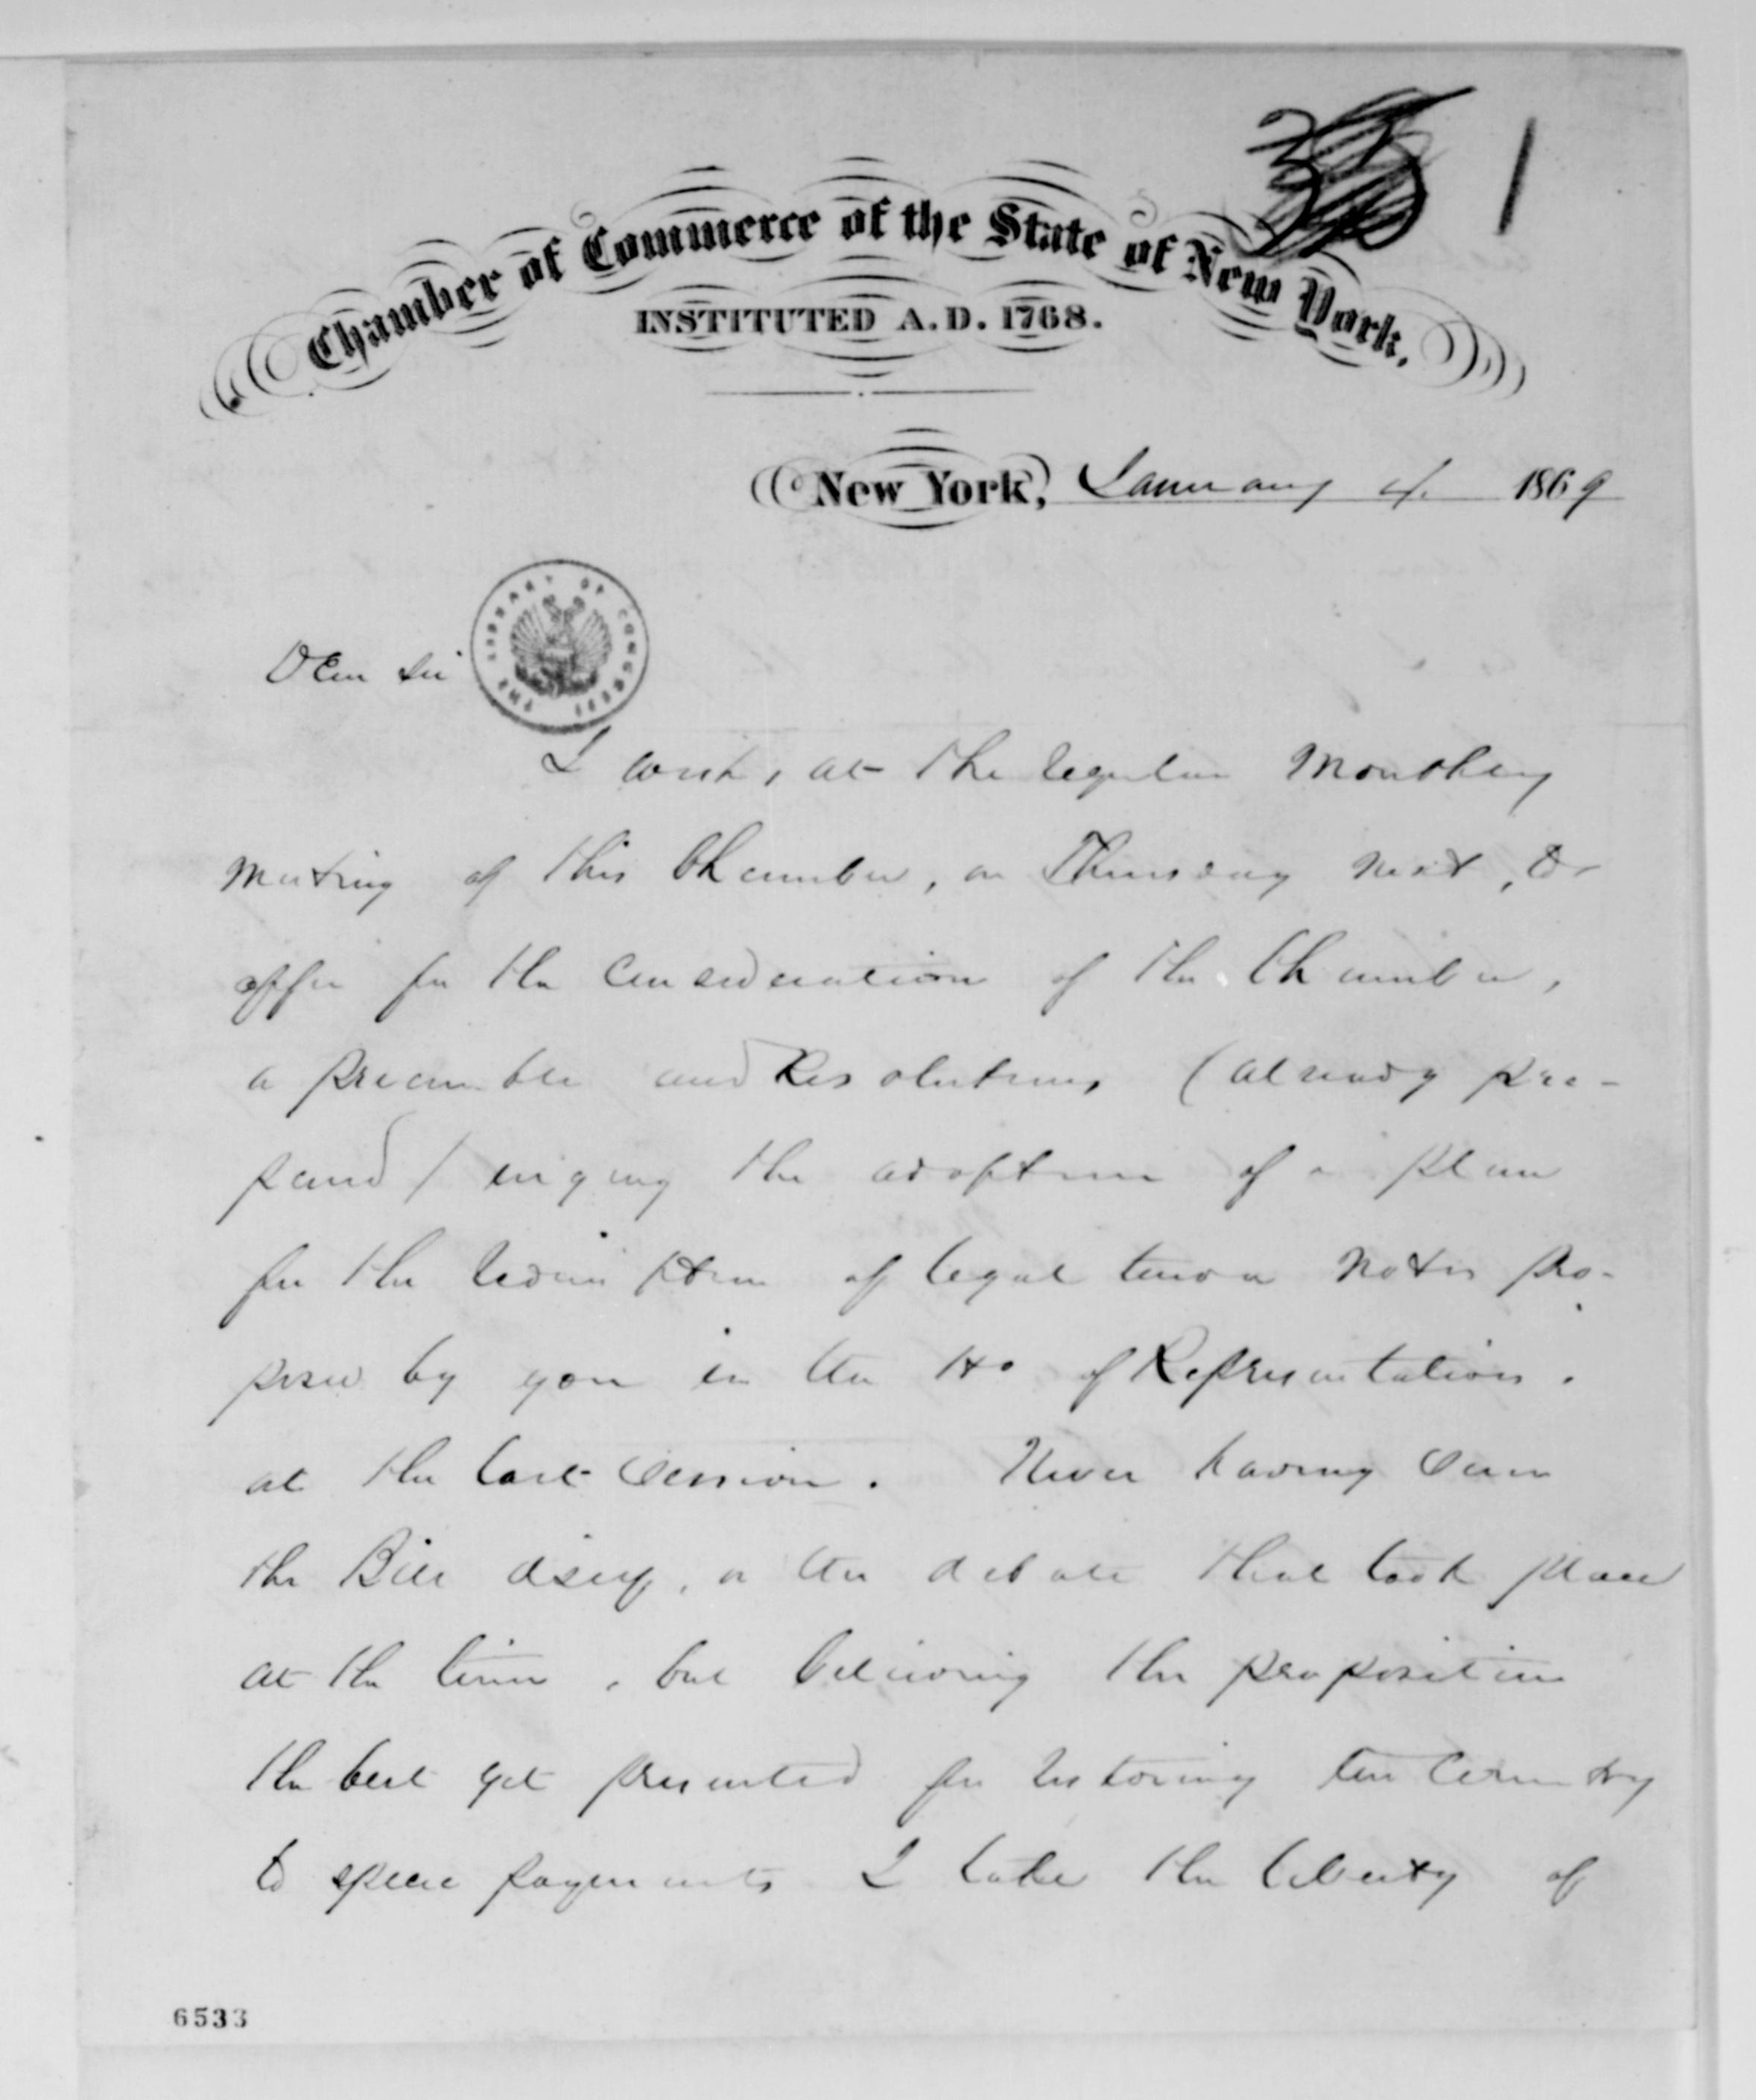 1
Chamber of Commerce of the State of New York.
INSTITUTED A.D. 1768.
New York, January 4. 1869
THE LIBRARY OF CONGRESS
Dear Sir
I wish, at the regular monthly
meeting of this Chamber, on Thursday next, to
offer for the consideration of the Chamber,
a preamble and Resolutions (already pre-
pared) urging the adoption of a plan
for the redemption of legal tender notes pro-
posed by you in the Ho of Representatives.
at the last session. Never having seen
the Bill itself, or the debate that took place
at the time, but believing the proposition
the best yet presented for restoring the country
to specie payments I take the liberty of
6533